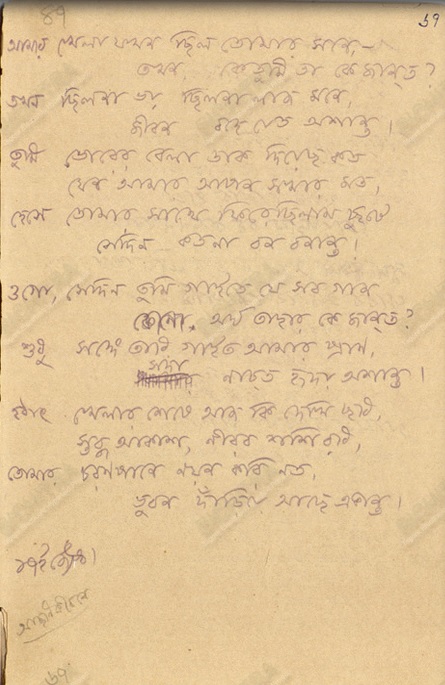 69
আমার খেলা যখন ছিল তোমার সনে,—
তখন, কে তুমি তা কে জান্‌ত?
তখন ছিলনা ভয় ছিলনা লাজ মনে,
জীবন বহে যেত অশান্ত।
তুমি ভোরের বেলা ডাক দিয়েছ কত
যেন আমার আপন সখার মত,
হেসে তোমার সাথে ফিরেছিলাম ছুটে
সেদিন কতনা বন বনান্ত।
ওগো, সেদিন তুমি গাইতে যে সব গান
কোনো, অর্থ তাহার কে জান্‌ত?
শুধু সঙ্গে তারি গাইত আমার প্রাণ,
সদা
নাচ্‌ত হৃদয় অশান্ত।
হঠাৎ খেলার শেষে আজ কি দেখি ছবি,
স্তব্ধ আকাশ, নীরব শশি রবি,
তোমার চরণপানে নয়ন করি নত,
ভুবন দাঁড়িয়ে আছে একান্ত।
১৭ই জ্যৈষ্ঠ।